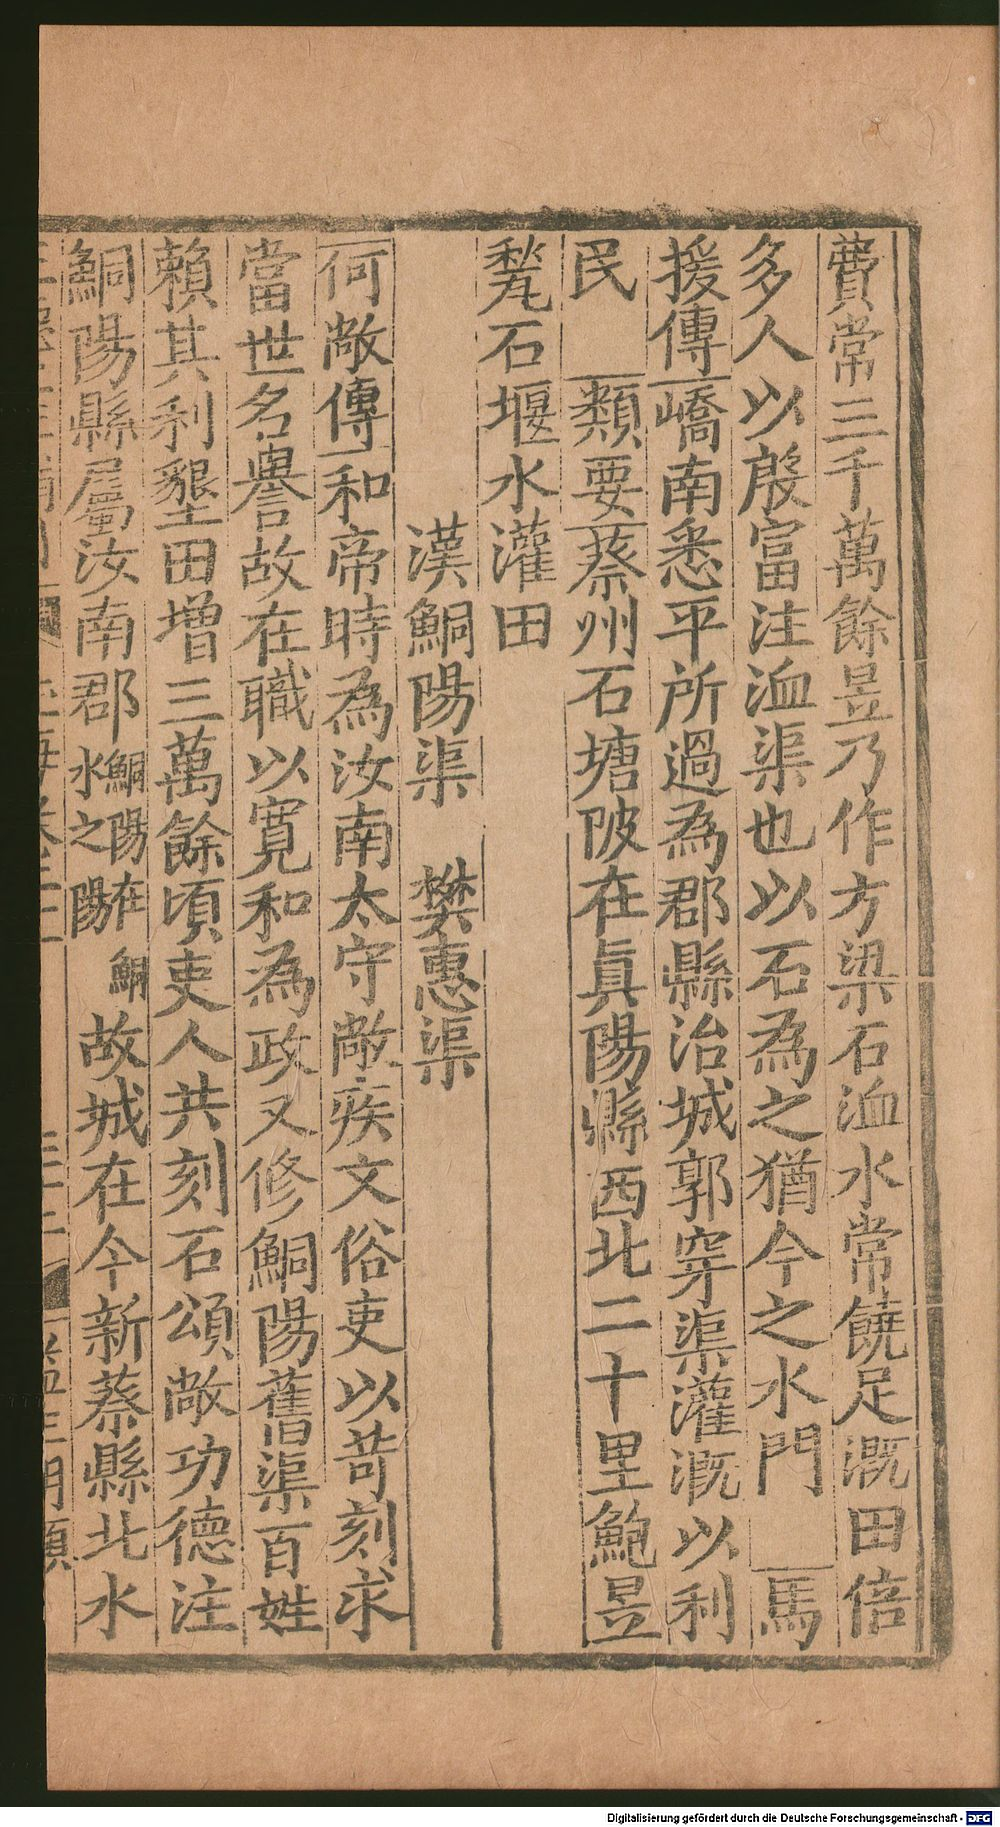 費常三千萬餘昱乃作方梁石洫水常饒足溉田倍
多人以殷富注洫渠也以石為之猶今之水門 馬
援傳嶠南悉平所過為郡縣治城郭穿渠灌溉以利
民 類要蔡州石塘陂在眞陽縣西北二十里鮑昱
甃石堰水灌田
漢鮦陽渠 樊惠渠
何敞傳和帝時為汝南太守敞疾文俗吏以苛刻求
當世名譽故在職以寬和為政又修鮦陽舊渠百姓
賴其利墾田增三萬餘頃吏人共刻石頌敞功德注
鮦陽縣屬汝南郡鮦陽在鮦水之陽故城在今新蔡縣北水
Digitalisierung gefördert durch die Deutsche Forschungsgemeinschaft - DFG